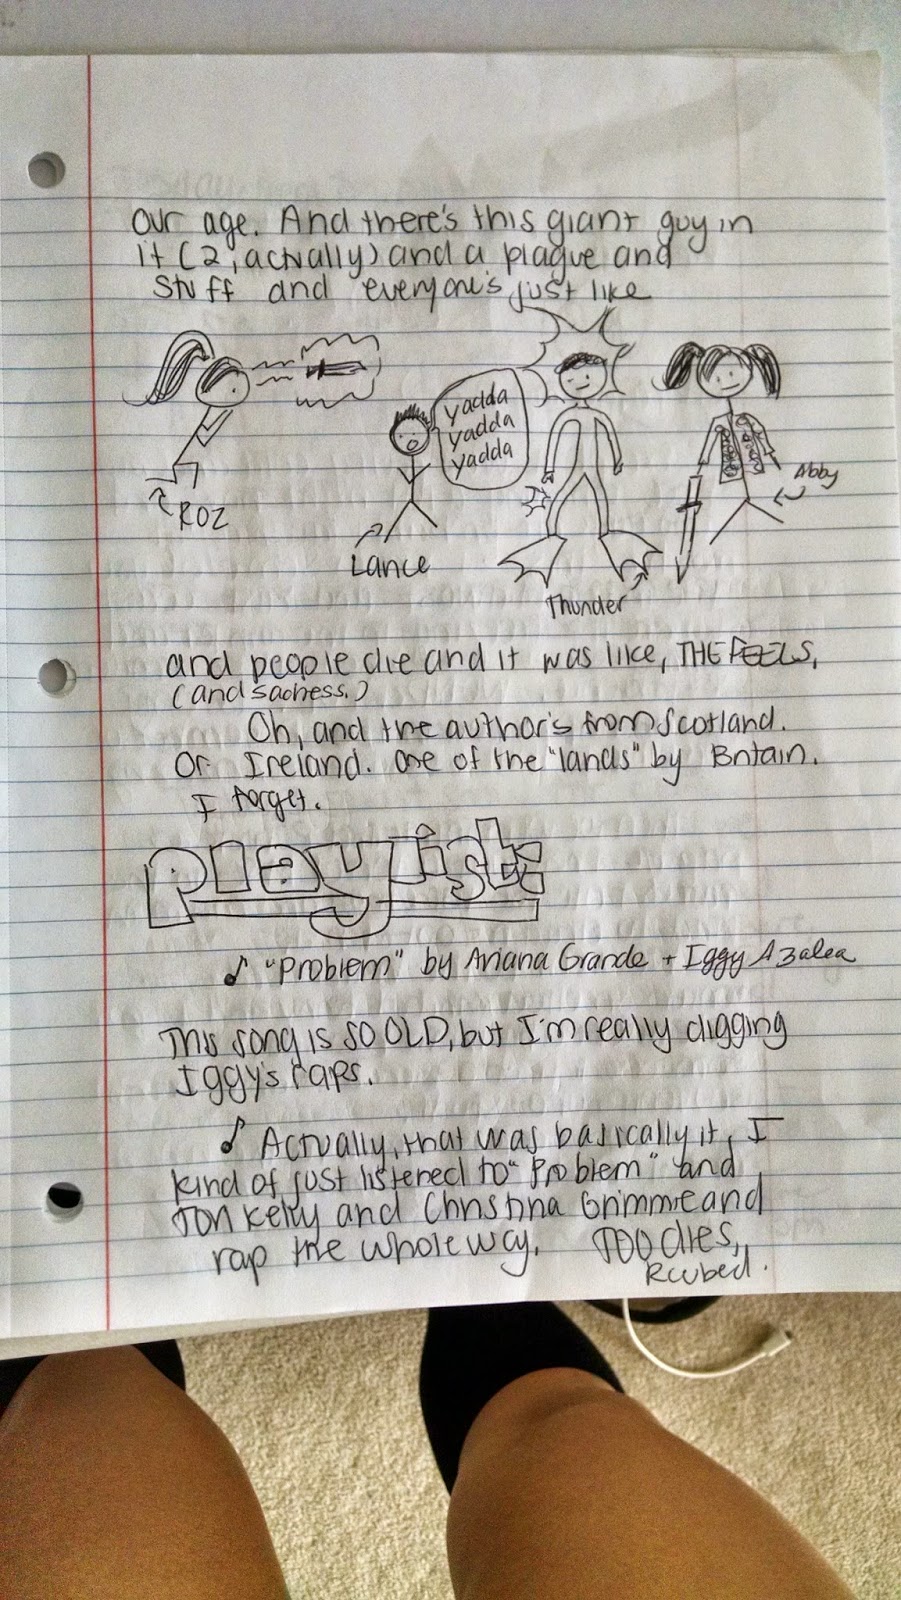 our age. And there's this giant guy in
it (2, actually) and a plague and
stuff and everyone's just like
yadda
yadda
yadda
ROZ
Lance
Thunder
Abby
and people die and it was like, THE FEELS,
(and sadness.)
Oh, and the author's from Scotland.
Or Ireland. One of the "lands" by Britain.
I forget.
Playlist:
"Problem" by Ariana Grande + Iggy Azalea
This song is SO OLD, but I'm really digging
Iggy's raps.
Actually, that was basically it, I
kind of just listened to "Problem" and
and Christina Grimmie and
rap the whole way. TOOdles,